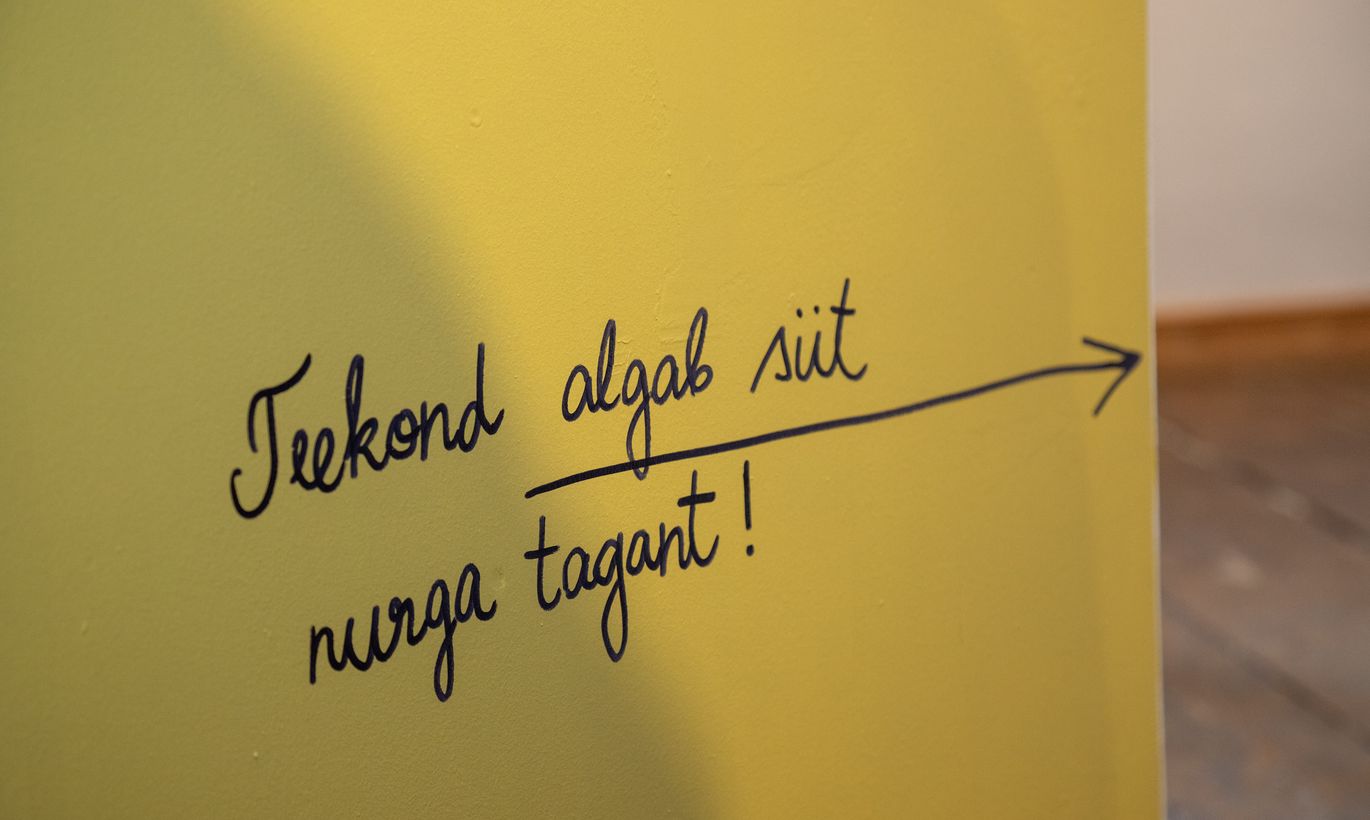 Teekond algab siit
nurga tagant!